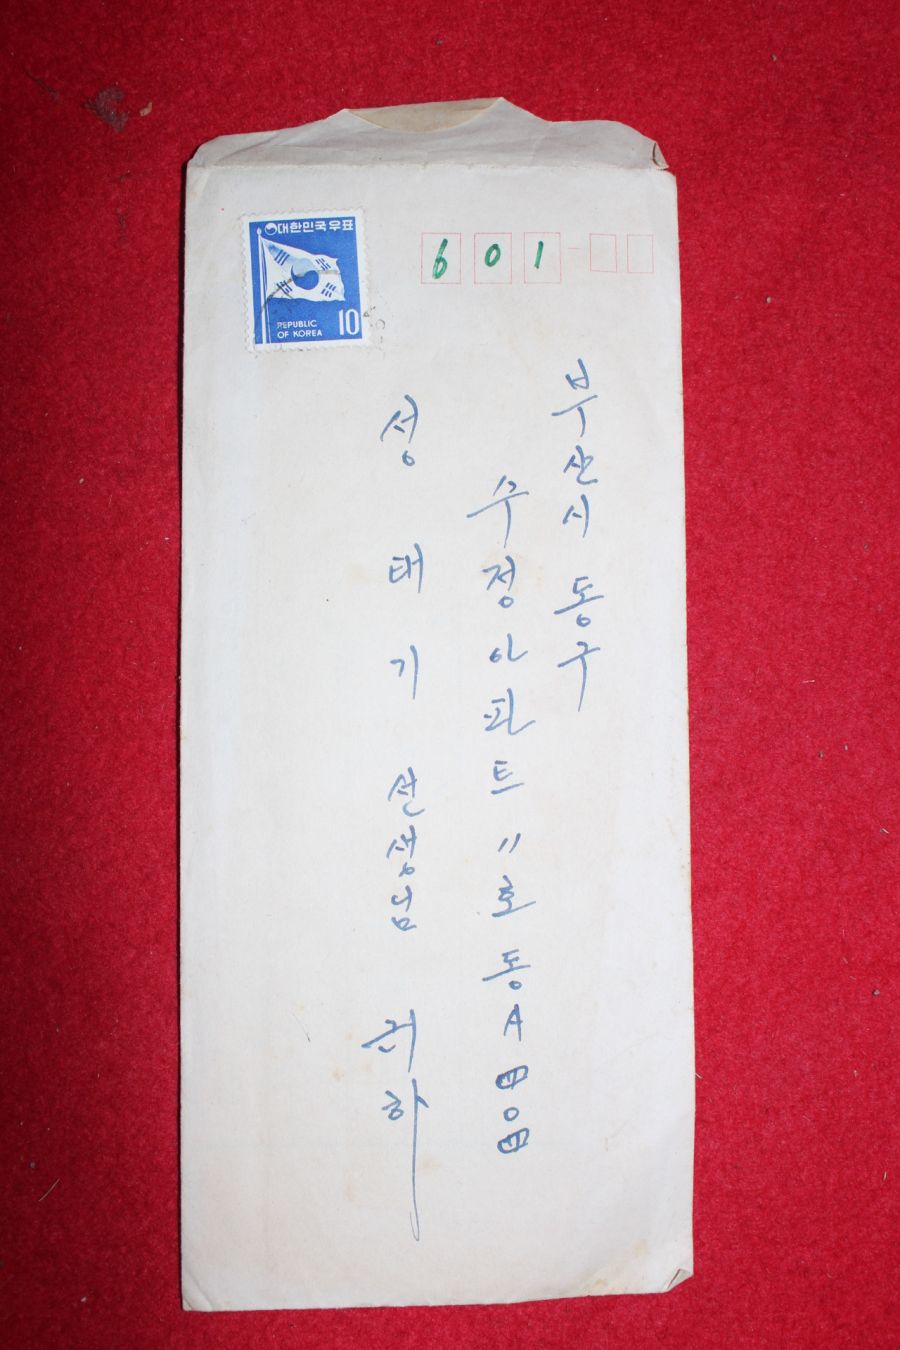 대한민국우표
REPUBLIC
OF KOREA
10
601
부산시 동구
수정아파트 11호 동A
성 태 기 선생님 귀하